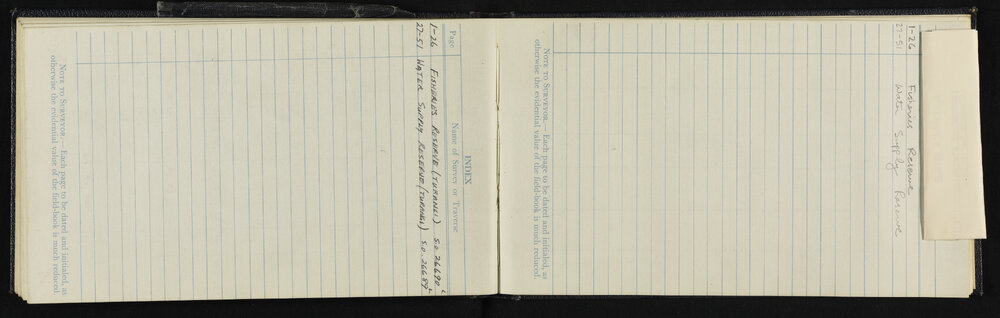 INDEX
Page Name of Survey or Traverse
1-26 FISHERIES RESERVE (TURANGI) S.O. 26690
27-51 WATER SUPPLY RESERVE (TURANGI) S.O. 26689
NOTE TO SURVEYOR.—Each page to be dated and initialed, as
otherwise the evidential value of the field-book is much reduced.
1-26 Fisheries Reserve
27-51 Water Supply Reserve
NOTE TO SURVEYOR.—Each page to be dated and initialed, as
otherwise the evidential value of the field-book is much reduced.